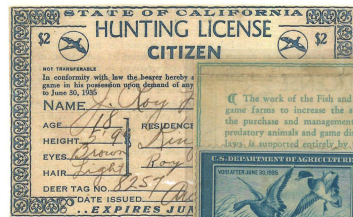 STATE OF CALIFORNIA
$2 HUNTING LICENSE $2
CITIZEN
NOT TRANSFERABLE
In conformity with law the bearer hereby a
game in his possession upon demand of any
to June 30, 1935
NAME J. Roy
AGE 18 RESIDENCE
HEIGHT 5'9
EYES Brown Roy
HAIR Light
DEER TAG NO. 8257
DATE ISSUED
..EXPIRES JU
The work of the Fish and
game farms to increase the s
the purchase and management
predatory animals and game di
laws, is supported entirely by
U.S. DEPARTMENT OF AGRICULTURE
VOID AFTER JUNE 30, 1935